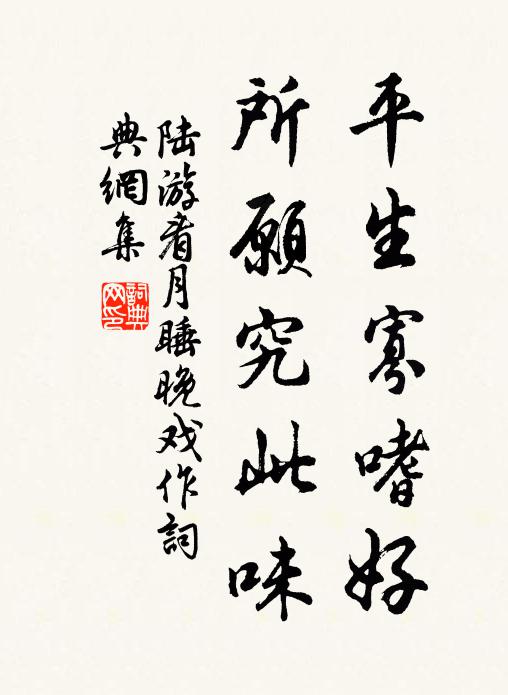 平生寡嗜好
所願究此味
陆游看月睡晚戏作詞
典網集
詞典网印